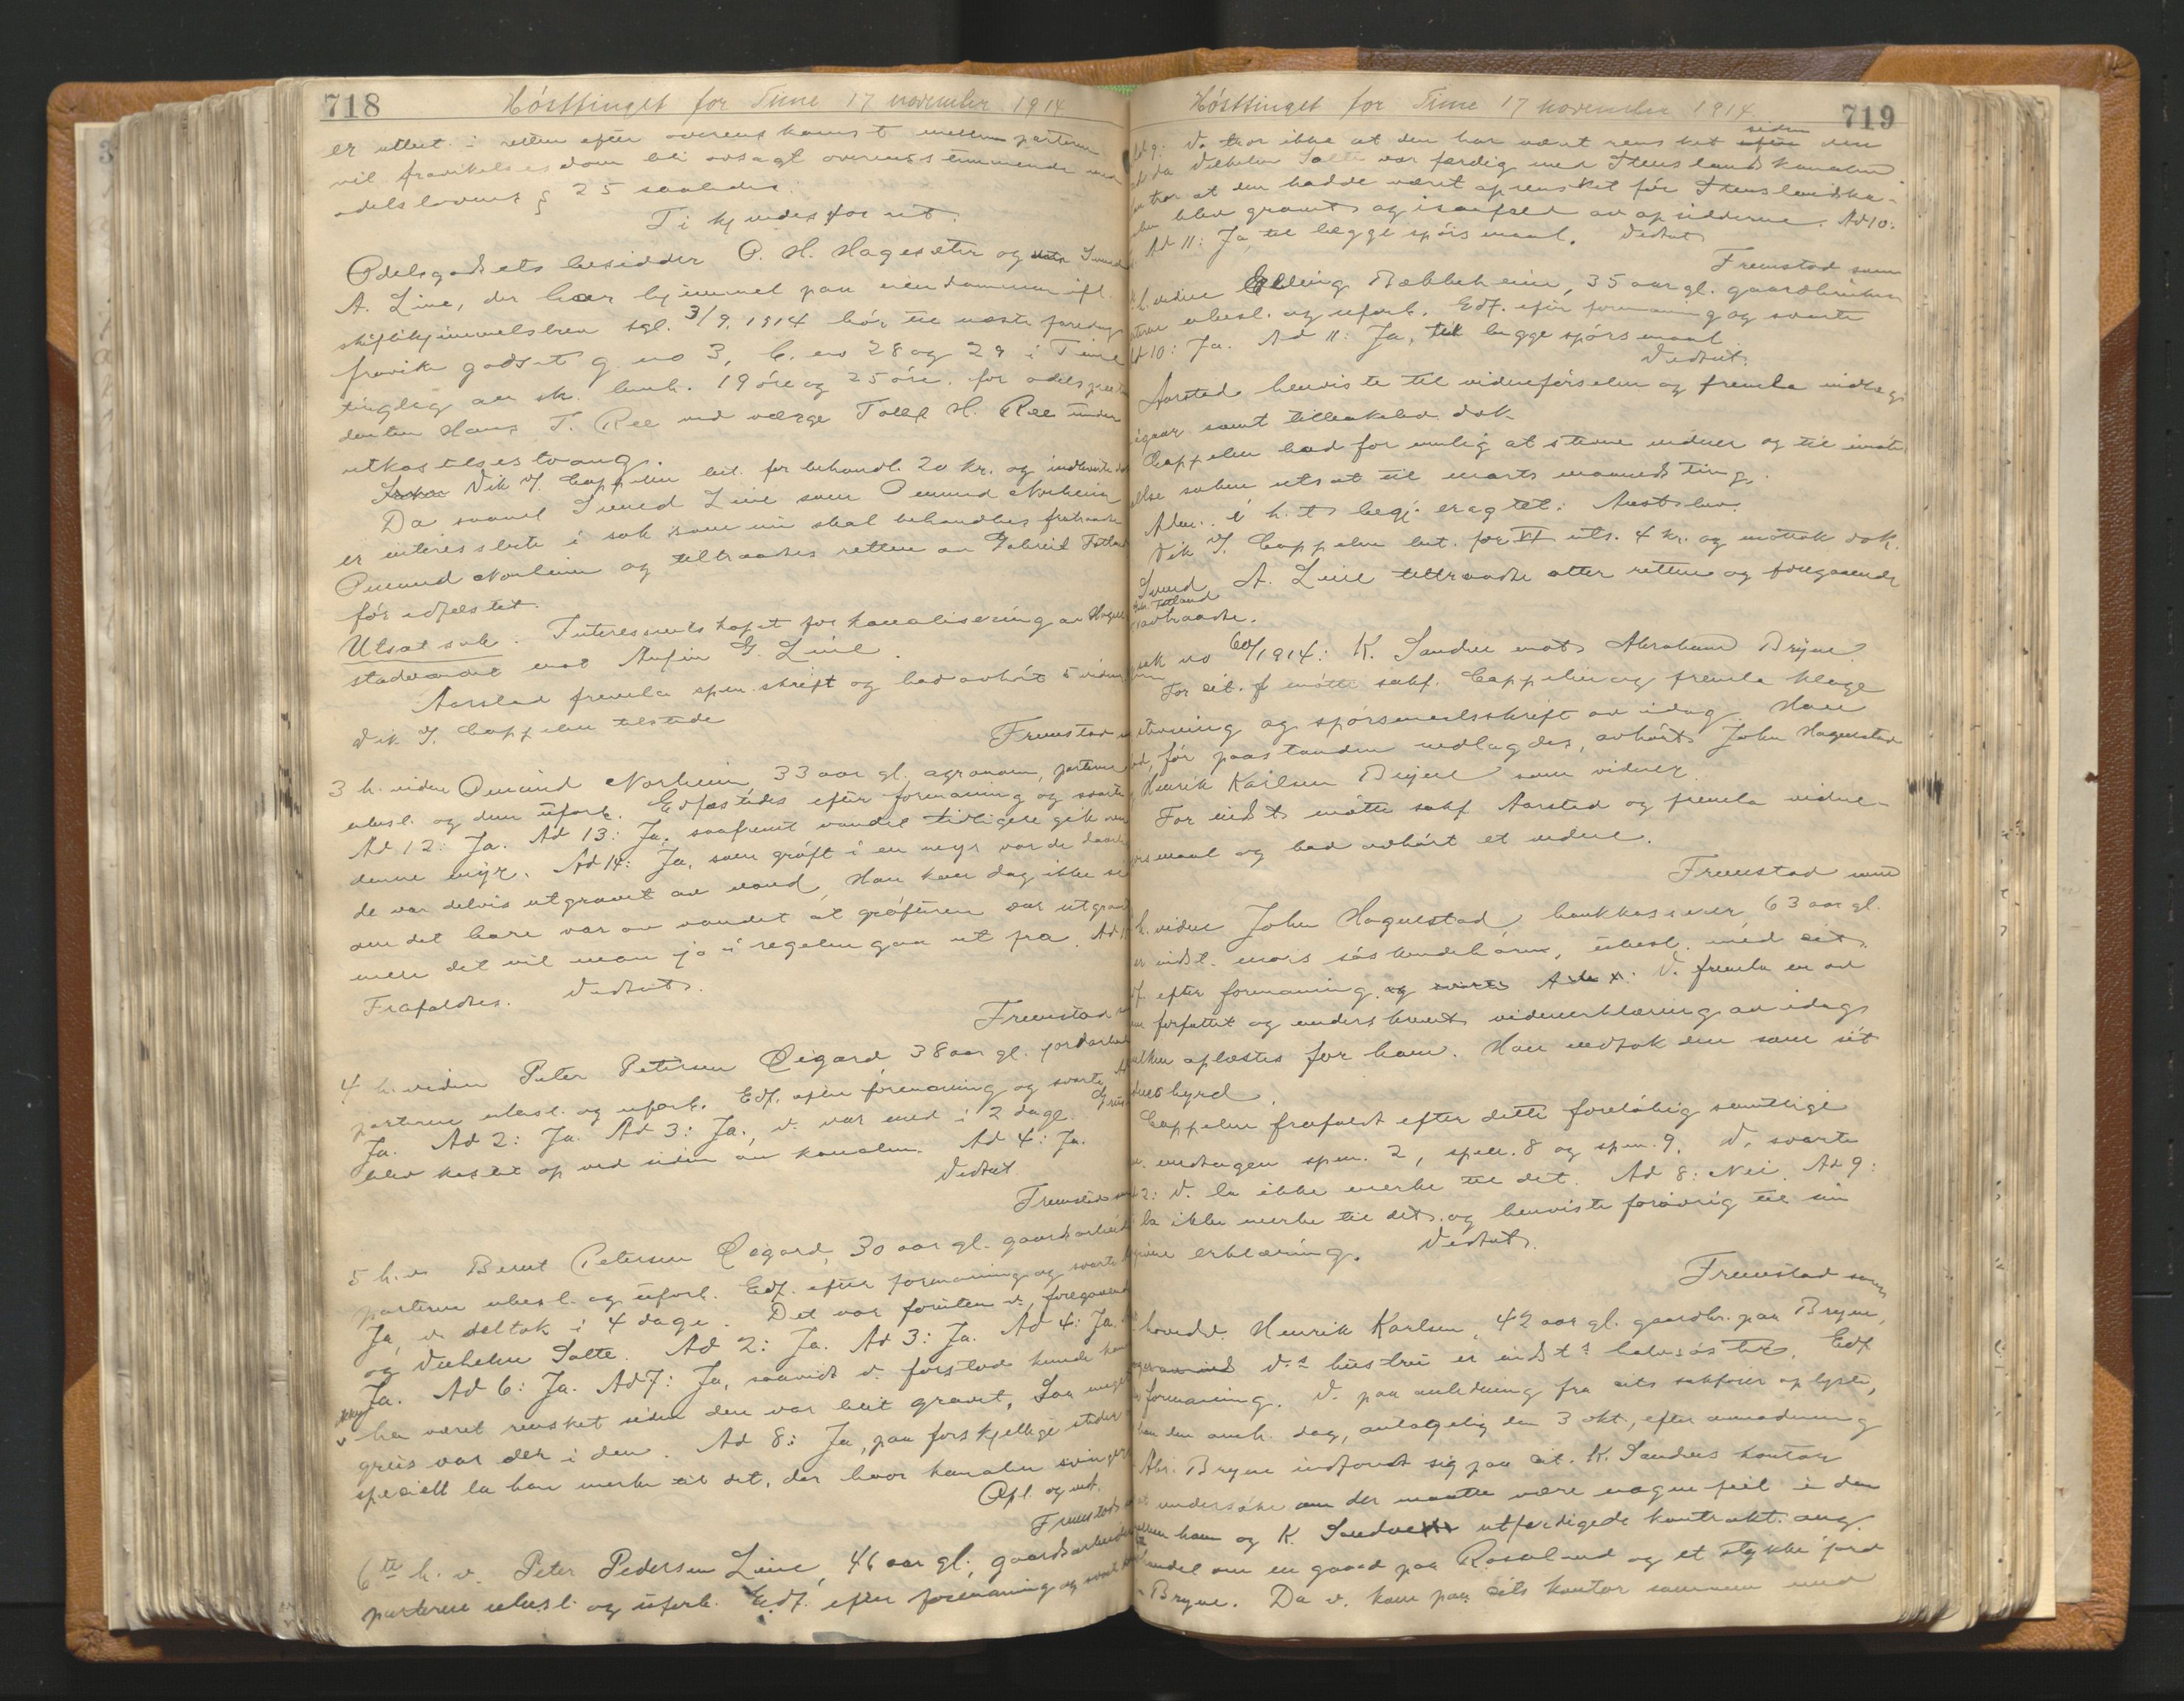 718
Hósttinget for Time 17 november 1914
er utlevt i retten efter overenskomst mellem parterne
vil fravikelsesdom bli avsagt overensstemmende med
odelslovens § 25 saaledes:
Ti kjendes for ret:
Odelsgodsets besidder O. H. Hagesæter og Svend
A. Line, der har hjemmel paa eiendommen ifl.
skifthjemmelsbrev tgl. 3/9. 1914 bór til næste faredag
fravike godset g. no 3, b. no 28 og 29 i Time
tinglag av sk. henh. 19 óre og 25 óre, for odelspræten-
denten Hans T. Ree ved værge Tollef H. Ree under
utkastelsestvang.
Vik f. Cappelen bet. for behandl. 20 kr. og indleverte dok
Da saavel Svend Line som Omund Norheim
er interesserte i sak som nu skal behandles fratraadte
Omund Norheim og tiltraadte retten av Gabriel Totland
fór edfæstet.
Utsat sak. Interessentskapet for kanalisering av Hogne-
stadvandet mot Anfin G. Line.
Aarstad fremla spm. skrift og bad avhórt 5 vidner
Vik f. Cappelen tilstede
Fremstod som
3 h. vidne Omund Norheim, 33 aar gl. agronom, parterne
ubesl. og dem uforb. Edfæstedes efter formaning og svarte
Ad 12: Ja. Ad 13: Ja, saafremt vandet tidligere gik over
denne myr. Ad 14: Ja, som gróft i en myr var de daarlig
de var delvis utgravet av vand, Han kan dog ikke se
om det bare var av vandet at gróften var utgravet
men det vil man jo i regelen gaa ut fra. Ad 1
Frafaldtes. Vedtat.
Fremstod som
4 h. vidne Peter Petersen Óigard, 38 aar gl. jordarbeid
parterne ubesl. og uforb. Edf. efter formaning og svarte Ad
Ja. Ad 2: Ja. Ad 3: Ja, v. var med i 2 dage. Gruis
blev kastet op ved siden av kanalen. Ad 4: Ja.
Vedtat
Fremstod som
5 h. v. Bernt Petersen Óigard, 30 aar gl. gaardsarbeid
parterne ubesl. og uforb. Edf. efter formaning og svarte
Ja, v. deltok i 4 dage. Det var foruten v. foregaaende
og Vilhelm Salte. Ad 2: Ja. Ad 3: Ja. Ad 4: Ja.
Ja. Ad 6: Ja. Ad 7: Ja, saavidt v. forstod kunde kan
ikke ha været rensket siden den var blit gravet, saa meget
gruis var der i den. Ad 8: Ja, paa forskjellige steder
specielt la han merke til det, der hvor kanalen svinger
Opl. og vedt.
Fremstod
6te h. v. Peter Pedersen Line, 46 aar gl. gaardsarbeider
parterne ubesl. og uforb. Edf. efter formaning og svarte
Hósttinget for Time 17 november 1914
719
Ad 9: V. tror ikke at den har været rensket siden den
da Vilhelm Salte var færdig med Stenslandskanalen
tror at den hadde været oprensket fór Stenslandska-
nalen blev gravet og isaafald av opsidderne. Ad 10:
Ad 11: Ja til begge spórsmaal. Vedtat
Fremstod som
h. vidne Elling Bøbbeheim, 35 aar gl. gaardbruker
parterne ubesl. og uforb. Edf. efter formaning og svarte
Ad 10: Ja. Ad 11: Ja, til begge spórsmaal.
Vedtat.
Aarstad henviste til vidnefórselen og fremla indlæg
igaar samt tilbakelev. dok
Cappelen bad for mulig at stevne vidner og til imóte-
gaaelse saken utsat til marts maaneds ting.
Adm. i h.t. begj. eragtet: Anstalev.
Vik f. Cappelen bet. for VI uts. 4 kr. og mottok dok.
Svend A. Line tiltraadte atter retten og foregaaende
Gabr. Totland
fratraadte.
sak no 60/1914: K. Sandve mot Abraham Bryne.
For cit. mótte sakf. Cappelen og fremla klage
stevning og spórsmaalsskrift av idag. Han
bad, fór paastanden nedlagdes, avhórt John Hognestad
Henrik Karlsen Bryne som vidner.
For indst. mótte sakf. Aarstad og fremla vidne-
spórsmaal og bad avhórt et vidne.
Fremstod som
h. vidne John Hognestad, bankkasserer, 63 aar gl.
er indst. mors sóskendebarn, ubesl. med cit.
Edf. efter formaning. V. fremla en av
ham forfattet og underskrevet vidneerklæring av idag
hvilken oplæstes for ham. Han vedtok den som sit
vidnesbyrd.
Cappelen frafaldt efter dette foreløbig samtlige
spm. undtagen spm. 2, spm. 8 og spm. 9. V. svarte
Ad 2: V. la ikke merke til det. Ad 8: Nei. Ad 9:
la ikke merke til det, og henviste fórøvrig til sin
givne erklæring. Vedtat.
Fremstod som
hovedv. Henrik Karlsen, 42 aar gl. gaardbr. paa Bryne,
v.s hustru er indst.s halvsóster. Edf
efter formaning. V. paa anledning fra cits sakfórer oplyste,
at han den anh. dag, antagelig den 3 okt, efter anmodning
Abr. Bryne indfandt sig paa cit. K. Sandves kontor
at undersóke om der maatte være nogen feil i den
mellem ham og K. Sandve utfærdigede kontrakt ang.
handel om en gaard paa Rosseland og et stykke jord
Bryne. Da v. kom paa cits kontor sammen med